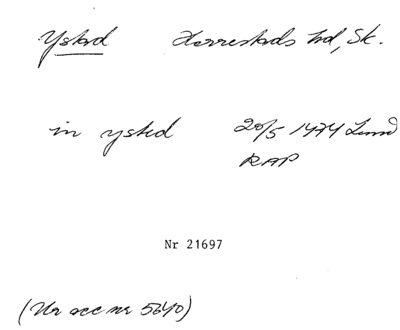 Ystad Herrestads hd, Sk.
in ysted 20/5 1474 Lund
RAP
Nr 21697
(Ur acc nr 5640)